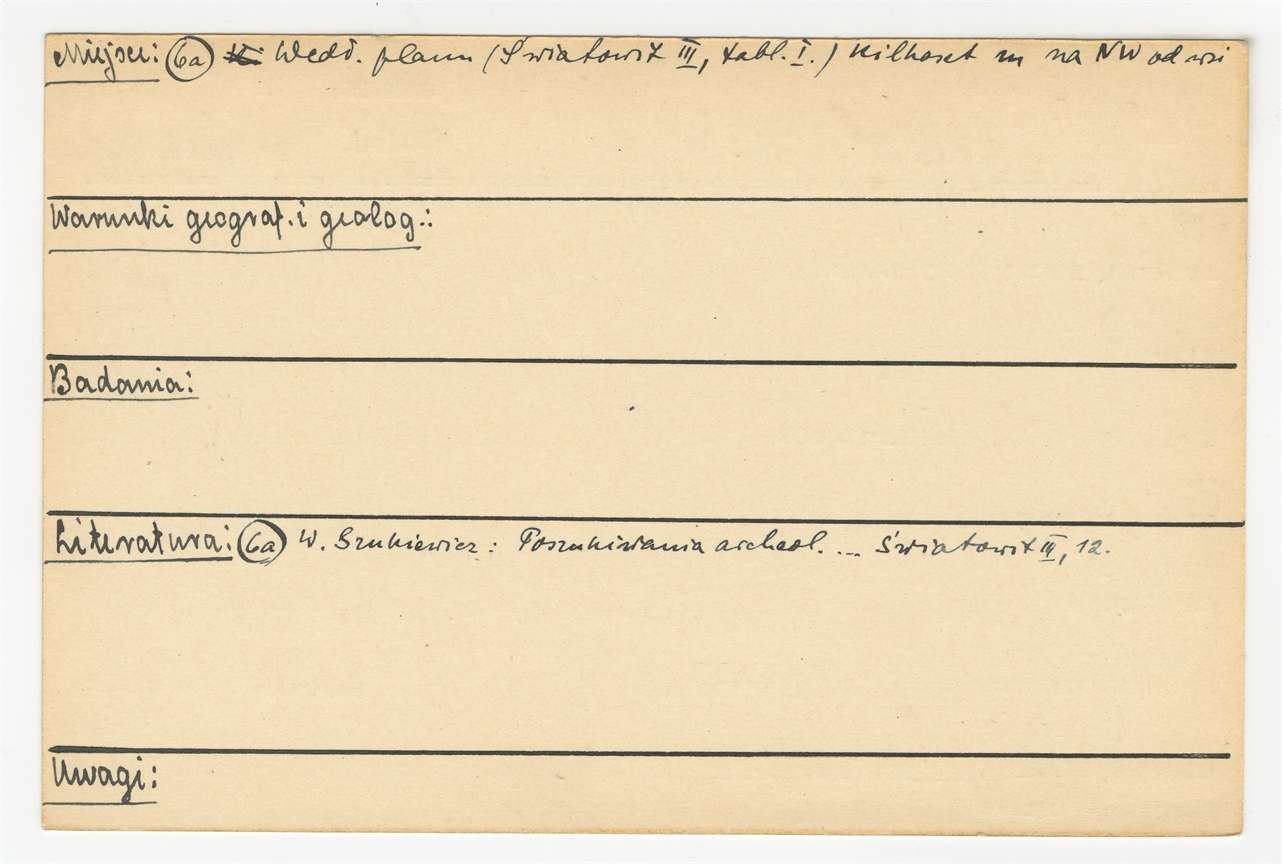 Miejsce: 6a Wedł. planu (Światowit III, tabl. I.) kilkaset m na NW od wsi
Warunki geograf. i geolog.:
Badania:
Literatura: 6a W. Szukiewicz: Poszukiwania archeol. ... Światowit III, 12.
Uwagi: